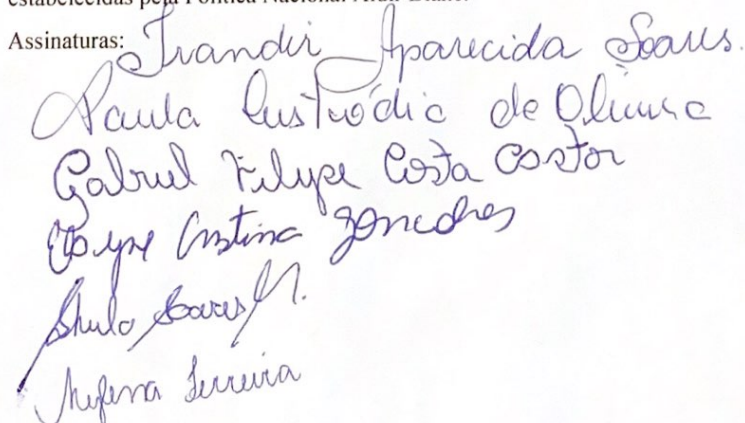 estabelecidas pela Política Nacional Aldir Blanc.
Assinaturas: Irandir Aparecida Soares.
Paula Custródio de Oliveira
Gabriel Filype Costa Castor
Cristina
Soares
Ferreira